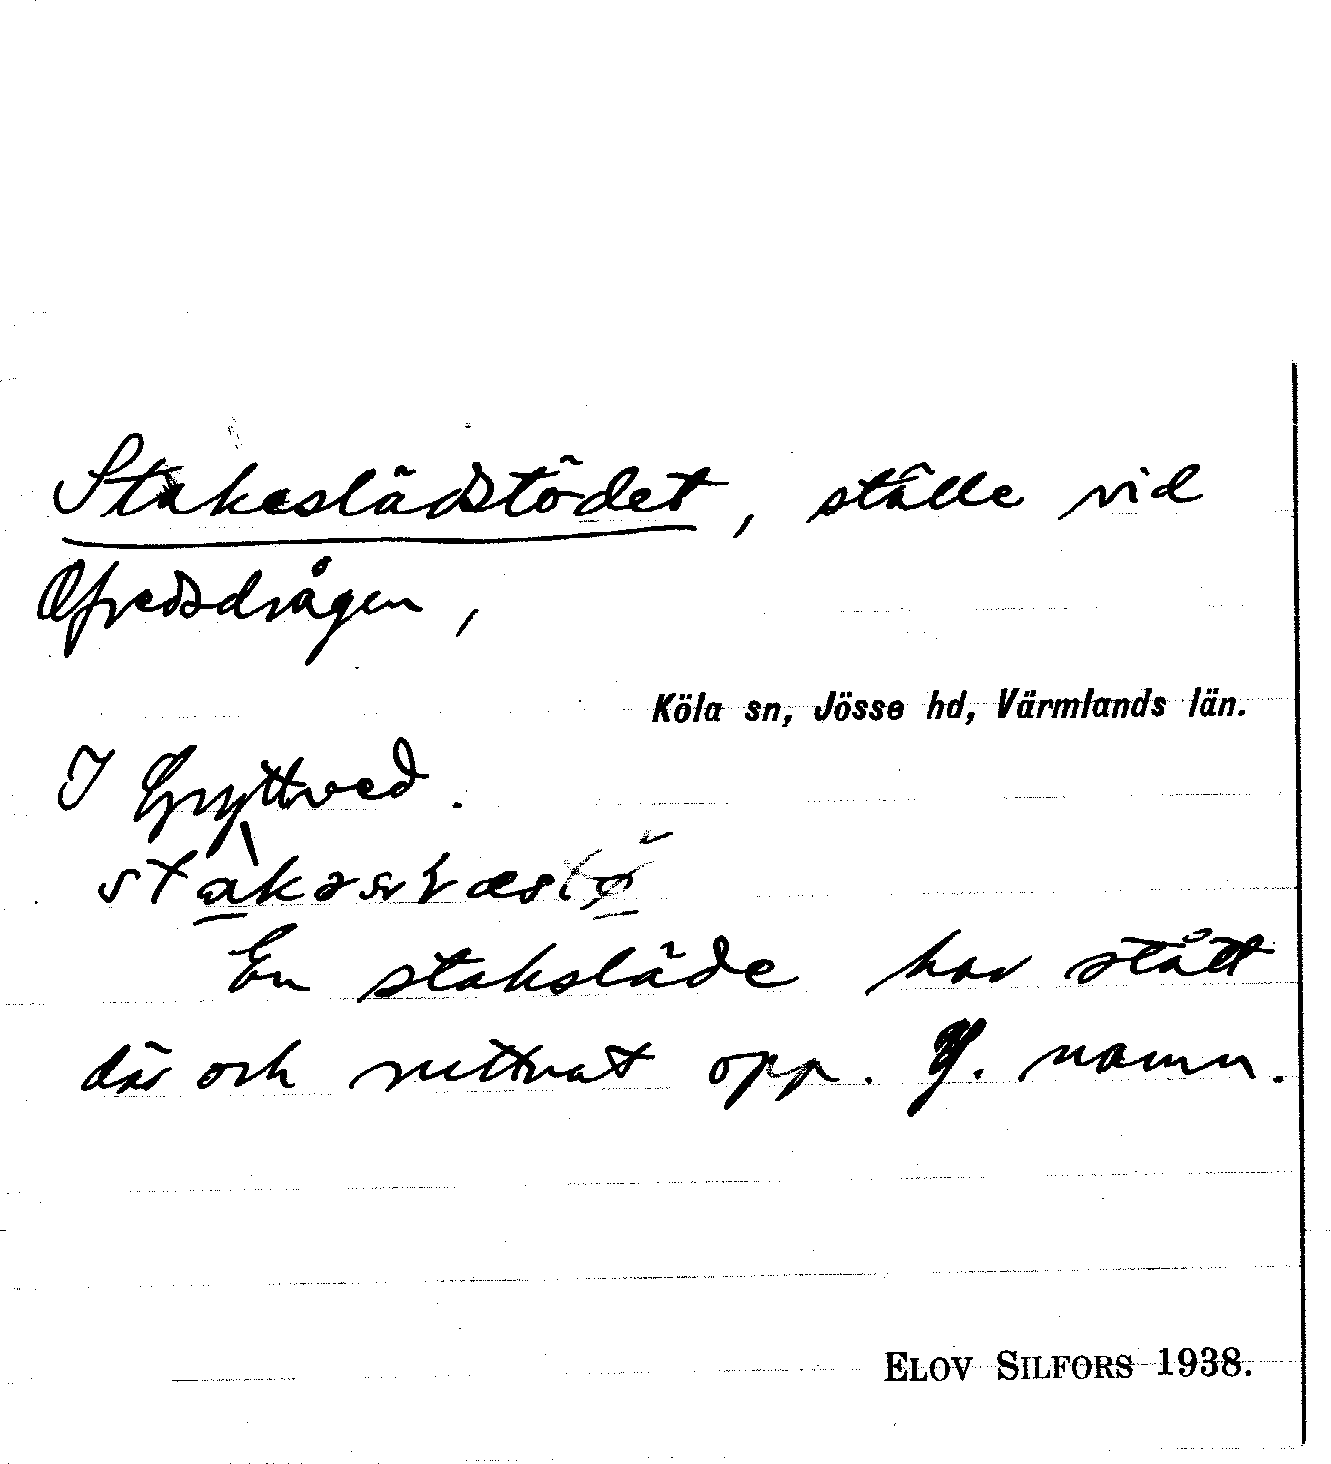 Stakeslädstödet, ställe vid
Ofredsdrågen,
Köla sn, Jösse hd, Värmlands län.
I Gryttved.
En staksläde har stått
där och ruttnat opp. Y. namn.
ELOV SILFORS 1938.